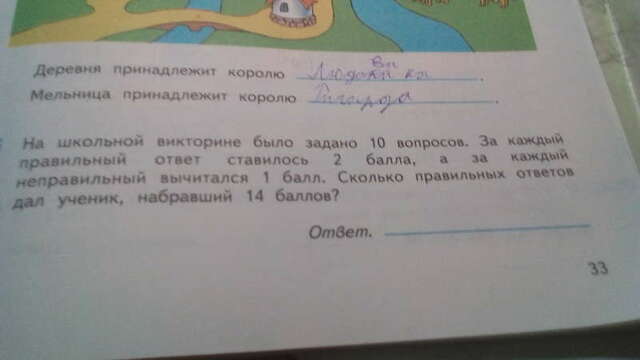 Деревня принадлежит королю Людовика.
Мельница принадлежит королю Ричарда.
На школьной викторине было задано 10 вопросов. За каждый
правильный ответ ставилось 2 балла, а за каждый
неправильный вычитался 1 балл. Сколько правильных ответов
дал ученик, набравший 14 баллов?
Ответ.
33